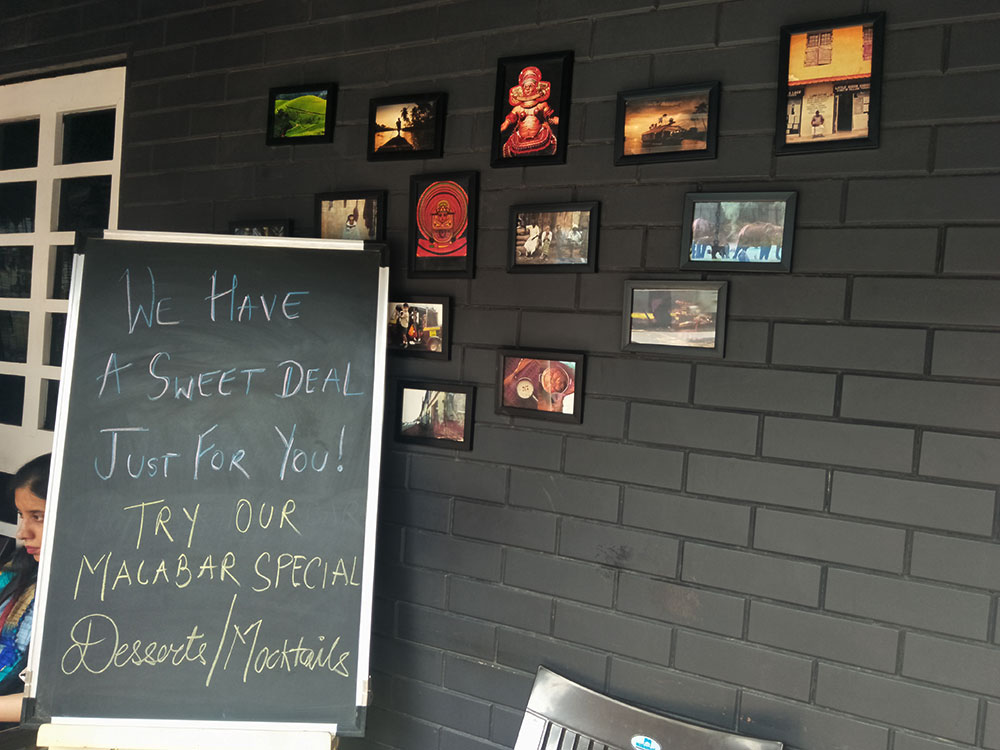 We Have
A Sweet Deal
Just For You!
TRY OUR
MALABAR SPECIAL
Desserts/Mocktails